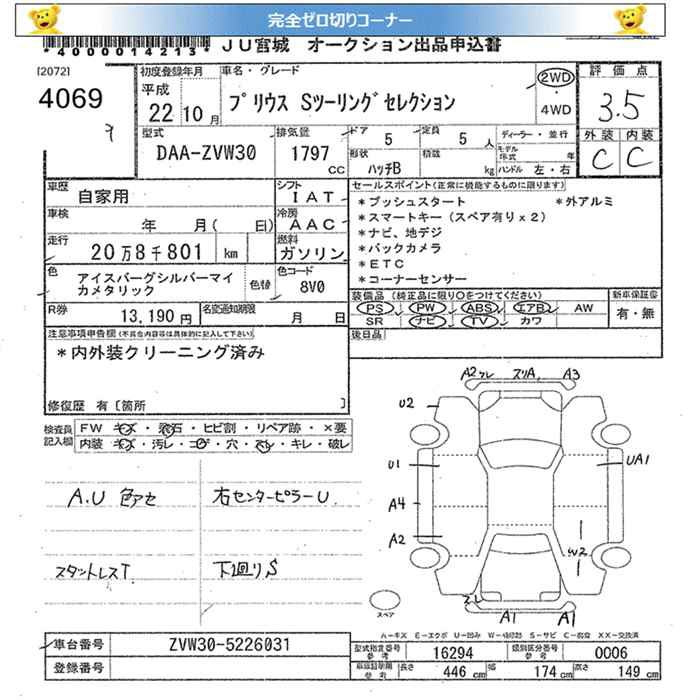 完全ゼロ切りコーナー
*4000014213* JU宮城 オークション出品申込書
[2072]
4069
初度登録年月
平成
22 10月
車名・グレード
プリウス Sツーリングセレクション
2WD
・
4WD
評価点
3.5
外装 内装
C C
型式
DAA-ZVW30
排気量
1797 CC
ドア 5
定員 5 人
形状 ハッチB
積載 kg
ディーラー・並行
モデル年式 年
ハンドル 左・右
車歴 自家用
シフト IAT
車検 年 月( 日)
冷房 AAC
走行 20万8千801 km
燃料 ガソリン
色 アイスバーグシルバーマイカメタリック
色替
色コード 8V0
R券 13,190円
名変通知期限 月 日
セールスポイント(正常に機能するものに限ります)
*プッシュスタート *外アルミ
*スマートキー(スペア有りx2)
*ナビ、地デジ
*バックカメラ
*ETC
*コーナーセンサー
装備品(純正品に限り○をつけてください)
PS PW ABS エアB AW
SR ナビ TV カワ
新車保証書
有・無
後日品
注意事項申告欄(不具合内容等は具体的に記入して下さい)
*内外装クリーニング済み
修復歴 有〔箇所 〕
検査員記入欄
FW キズ・飛石・ヒビ割・リペア跡・×要
内装 キズ・汚レ・コゲ・穴・スレ・キレ・破レ
A.U 色アセ
右センターピラーU.
スタットレスT
下廻りS
A2 スリA A3
U2
U1
UA1
A4
A2
W2
A1 A1
スペア
A-キズ E-エクボ U-凹み S-サビ C-腐食 XX-交換済
車台番号 ZVW30-5226031
登録番号
型式指定番号 参考 16294
類別区分番号 参考 0006
参考 長さ 446 cm 幅 174 cm 高さ 149 cm